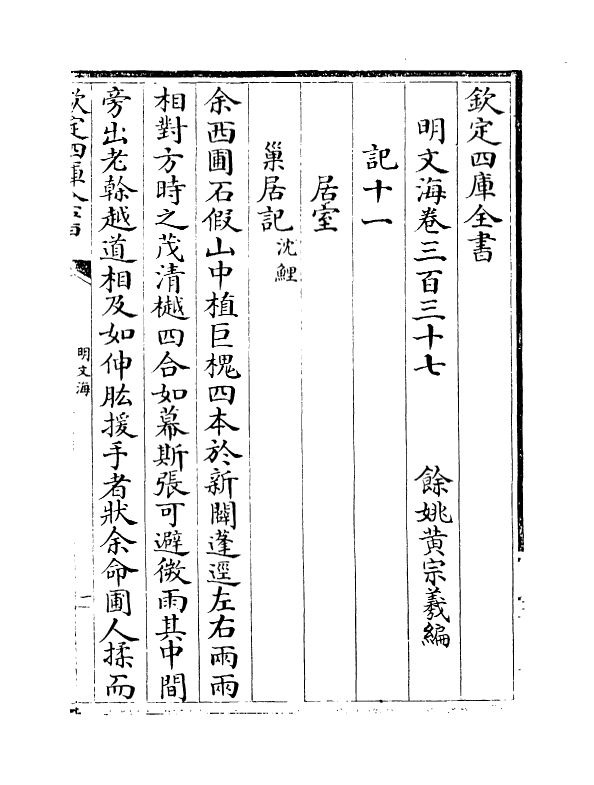 欽定四庫全書
明文海卷三百三十七　餘姚黃宗羲編
記十一
居室
巢居記沈鯉
余西圃石假山中植巨槐四本於新闢蓬逕左右兩兩
相對方時之茂清樾四合如幕斯張可避微雨其中間
旁出老榦越道相及如伸肱援手者狀余命圃人揉而
欽定四庫全書
明文海
一